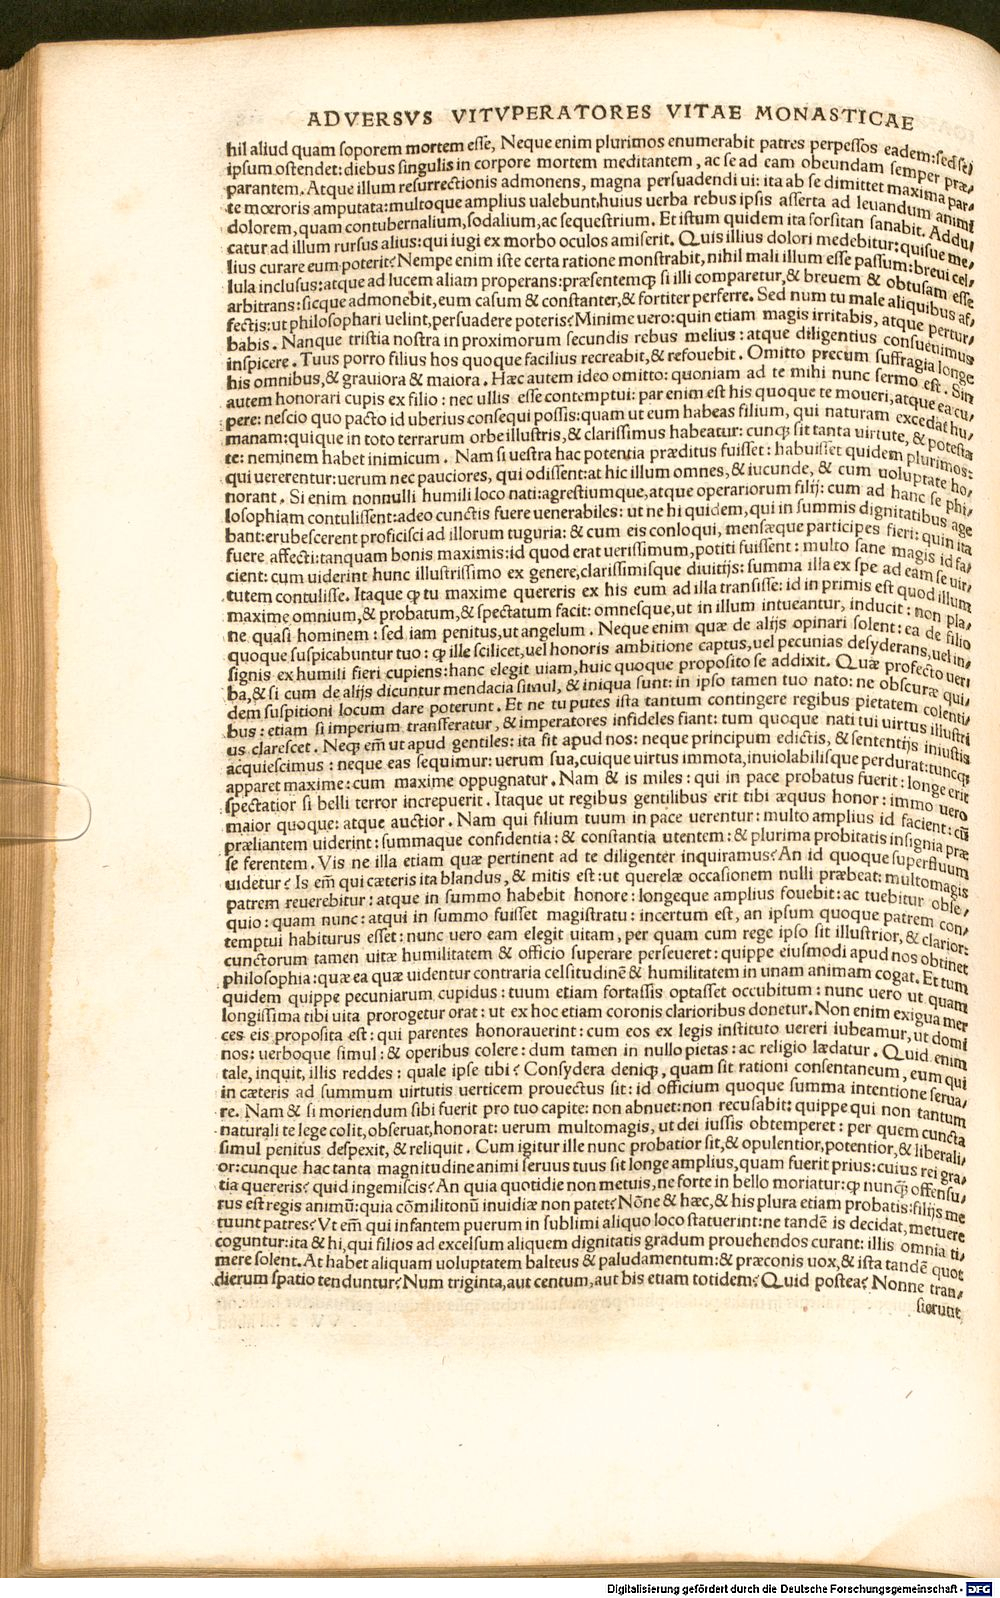 ADVERSVS VITVPERATORES VITAE MONASTICAE
hil aliud quam soporem mortem esse, Neque enim plurimos enumerabit patres perpessos eadem: sed se/
ipsum ostendet: diebus singulis in corpore mortem meditantem, ac se ad eam obeundam semper præ/
parantem. Atque illum resurrectionis admonens, magna persuadendi ui: ita ab se dimittet maxima par/
te mœroris amputata: multoque amplius ualebunt, huius uerba rebus ipsis asserta ad leuandum animi
dolorem, quam contubernalium, sodalium, ac sequestrium. Et istum quidem ita forsitan sanabit. Addu/
catur ad illum rursus alius: qui iugi ex morbo oculos amiserit. Quis illius dolori medebitur: quisue me/
lius curare eum poterit? Nempe enim iste certa ratione monstrabit, nihil mali illum esse passum: breui cel/
lula inclusus: atque ad lucem aliam properans: præsentemq; si illi comparetur, & breuem & obtusam esse
arbitrans: sicque admonebit, eum casum & constanter, & fortiter perferre. Sed num tu male aliquibus af/
fectis: ut philosophari uelint, persuadere poteris? Minime uero: quin etiam magis irritabis, atque pertur/
babis. Nanque tristia nostra in proximorum secundis rebus melius: atque diligentius consueuimus
inspicere. Tuus porro filius hos quoque facilius recreabit, & refouebit. Omitto precum suffragia longe
his omnibus, & grauiora & maiora. Hæc autem ideo omitto: quoniam ad te mihi nunc sermo est. Sin
autem honorari cupis ex filio: nec ullis esse contemptui: par enim est his quoque te moueri, atque ea cu/
pere: nescio quo pacto id uberius consequi possis: quam ut eum habeas filium, qui naturam excedat hu/
manam: quique in toto terrarum orbe illustris, & clarissimus habeatur: cunq; sit tanta uirtute, & potesta
te: neminem habet inimicum. Nam si uestra hac potentia præditus fuisset: habuisset quidem plurimos:
qui uererentur: uerum nec pauciores, qui odissent: at hic illum omnes, & iucunde, & cum uoluptate ho/
norant. Si enim nonnulli humili loco nati: agrestiumque, atque operariorum filij: cum ad hanc se phi/
losophiam contulissent: adeo cunctis fuere uenerabiles: ut ne hi quidem, qui in summis dignitatibus age
bant: erubescerent proficisci ad illorum tuguria: & cum eis conloqui, mensæque participes fieri: quin ita
fuere affecti: tanquam bonis maximis: id quod erat uerissimum, potiti fuissent: multo sane magis id fa/
cient: cum uiderint hunc illustrissimo ex genere, clarissimisque diuitijs: summa illa ex spe ad eam se uir/
tutem contulisse. Itaque q̃ tu maxime quereris ex his eum ad illa transisse: id in primis est quod illum
maxime omnium, & probatum, & spectatum facit: omnesque, ut in illum intueantur, inducit: non pla/
ne quasi hominem: sed iam penitus, ut angelum. Neque enim quæ de alijs opinari solent: ea de filio
quoque suspicabuntur tuo: q̃ ille scilicet, uel honoris ambitione captus, uel pecunias desyderans, uel in/
signis ex humili fieri cupiens: hanc elegit uiam, huic quoque proposito se addixit. Quæ profecto ueri
ba, & si cum de alijs dicuntur mendacia simul, & iniqua sunt: in ipso tamen tuo nato: ne obscuræ qui/
dem suspitioni locum dare poterunt. Et ne tu putes ista tantum contingere regibus pietatem colenti/
bus: etiam si imperium transferatur, & imperatores infideles fiant: tum quoque nati tui uirtus illustri
us clarescet. Neq; em̃ ut apud gentiles: ita fit apud nos: neque principum edictis, & sententijs iniustis
acquiescimus: neque eas sequimur: uerum sua, cuique uirtus immota, inuiolabilisque perdurat: tuncq;
apparet maxime: cum maxime oppugnatur. Nam & is miles: qui in pace probatus fuerit: longe erit
spectatior si belli terror increpuerit. Itaque ut regibus gentilibus erit tibi æquus honor: immo uero
maior quoque: atque auctior. Nam qui filium tuum in pace uerentur: multo amplius id facient: cũ
præliantem uiderint: summaque confidentia: & constantia utentem: & plurima probitatis insignia præ
se ferentem. Vis ne illa etiam quæ pertinent ad te diligenter inquiramus? An id quoque superfluum
uidetur? Is em̃ qui cæteris ita blandus, & mitis est: ut querelæ occasionem nulli præbeat: multomagis
patrem reuerebitur: atque in summo habebit honore: longeque amplius fouebit: ac tuebitur obse/
quio: quam nunc: atqui in summo fuisset magistratu: incertum est, an ipsum quoque patrem con/
temptui habiturus esset: nunc uero eam elegit uitam, per quam cum rege ipso sit illustrior, & clarior:
cunctorum tamen uitæ humilitatem & officio superare perseueret: quippe eiusmodi apud nos obtinet
philosophia: quæ ea quæ uidentur contraria celsitudinẽ & humilitatem in unam animam cogat. Et tum
quidem quippe pecuniarum cupidus: tuum etiam fortassis optasset occubitum: nunc uero ut quam
longissima tibi uita prorogetur orat: ut ex hoc etiam coronis clarioribus donetur. Non enim exigua mer
ces eis proposita est: qui parentes honorauerint: cum eos ex legis instituto uereri iubeamur, ut domi
nos: uerboque simul: & operibus colere: dum tamen in nullo pietas: ac religio lædatur. Quid enim
tale, inquit, illis reddes: quale ipse tibi? Consydera deniq;, quam sit rationi consentaneum, eum qui
in cæteris ad summum uirtutis uerticem prouectus sit: id officium quoque summa intentione serua/
re. Nam & si moriendum sibi fuerit pro tuo capite: non abnuet: non recusabit: quippe qui non tantum
naturali te lege colit, obseruat, honorat: uerum multomagis, ut dei iussis obtemperet: per quem cuncta
simul penitus despexit, & reliquit. Cum igitur ille nunc probatior sit, & opulentior, potentior, & liberali/
or: cunque hac tanta magnitudine animi seruus tuus sit longe amplius, quam fuerit prius: cuius rei gra/
tia quereris? quid ingemiscis? An quia quotidie non metuis, ne forte in bello moriatur: q̃ nunq̃ offensu/
rus est regis animũ: quia cõmilitonũ inuidiæ non patet? Nõne & hæc, & his plura etiam probatis: filijs me
tuunt patres? Vt em̃ qui infantem puerum in sublimi aliquo loco statuerint: ne tandẽ is decidat, metuere
coguntur: ita & hi, qui filios ad excelsum aliquem dignitatis gradum prouehendos curant: illis omnia ti/
mere solent. At habet aliquam uoluptatem balteus & paludamentum: & præconis uox, & ista tandẽ quot
dierum spatio tenduntur? Num triginta, aut centum, aut bis etiam totidem? Quid postea? Nonne tran/
sierunt,
Digitalisierung gefördert durch die Deutsche Forschungsgemeinschaft - DFG